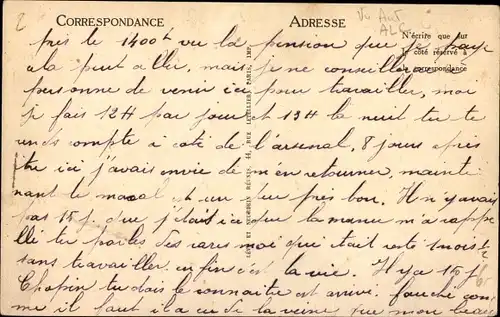 CORRESPONDANCE
ADRESSE
N'écrire que sur
le côté réservé à
la correspondance
LÉVY ET NEURDEIN RÉUNIS, 44, RUE LETELLIER, PARIS, IMP.
près le 1400 vu la pension que je paye
cela peut aller, mais je ne conseillerai
personne de venir ici pour travailler, moi
je fais 12H par jour et 13H la nuit tu te
rends compte à coté de l'arsenal, 8 jours après
être ici j'avais envie de m'en retourner, mainte
nant le moral est un peu près bon. Il n'y avait
pas 15 j. que j'étais ici que la m'a rappe
lé tu parles des que était resté 1 mois
sans travailler enfin c'est la vie. Il y a 15 j
Chopin tu dois le connaitre est arrivé. com
me il faut il a eu de la veine que mon beau